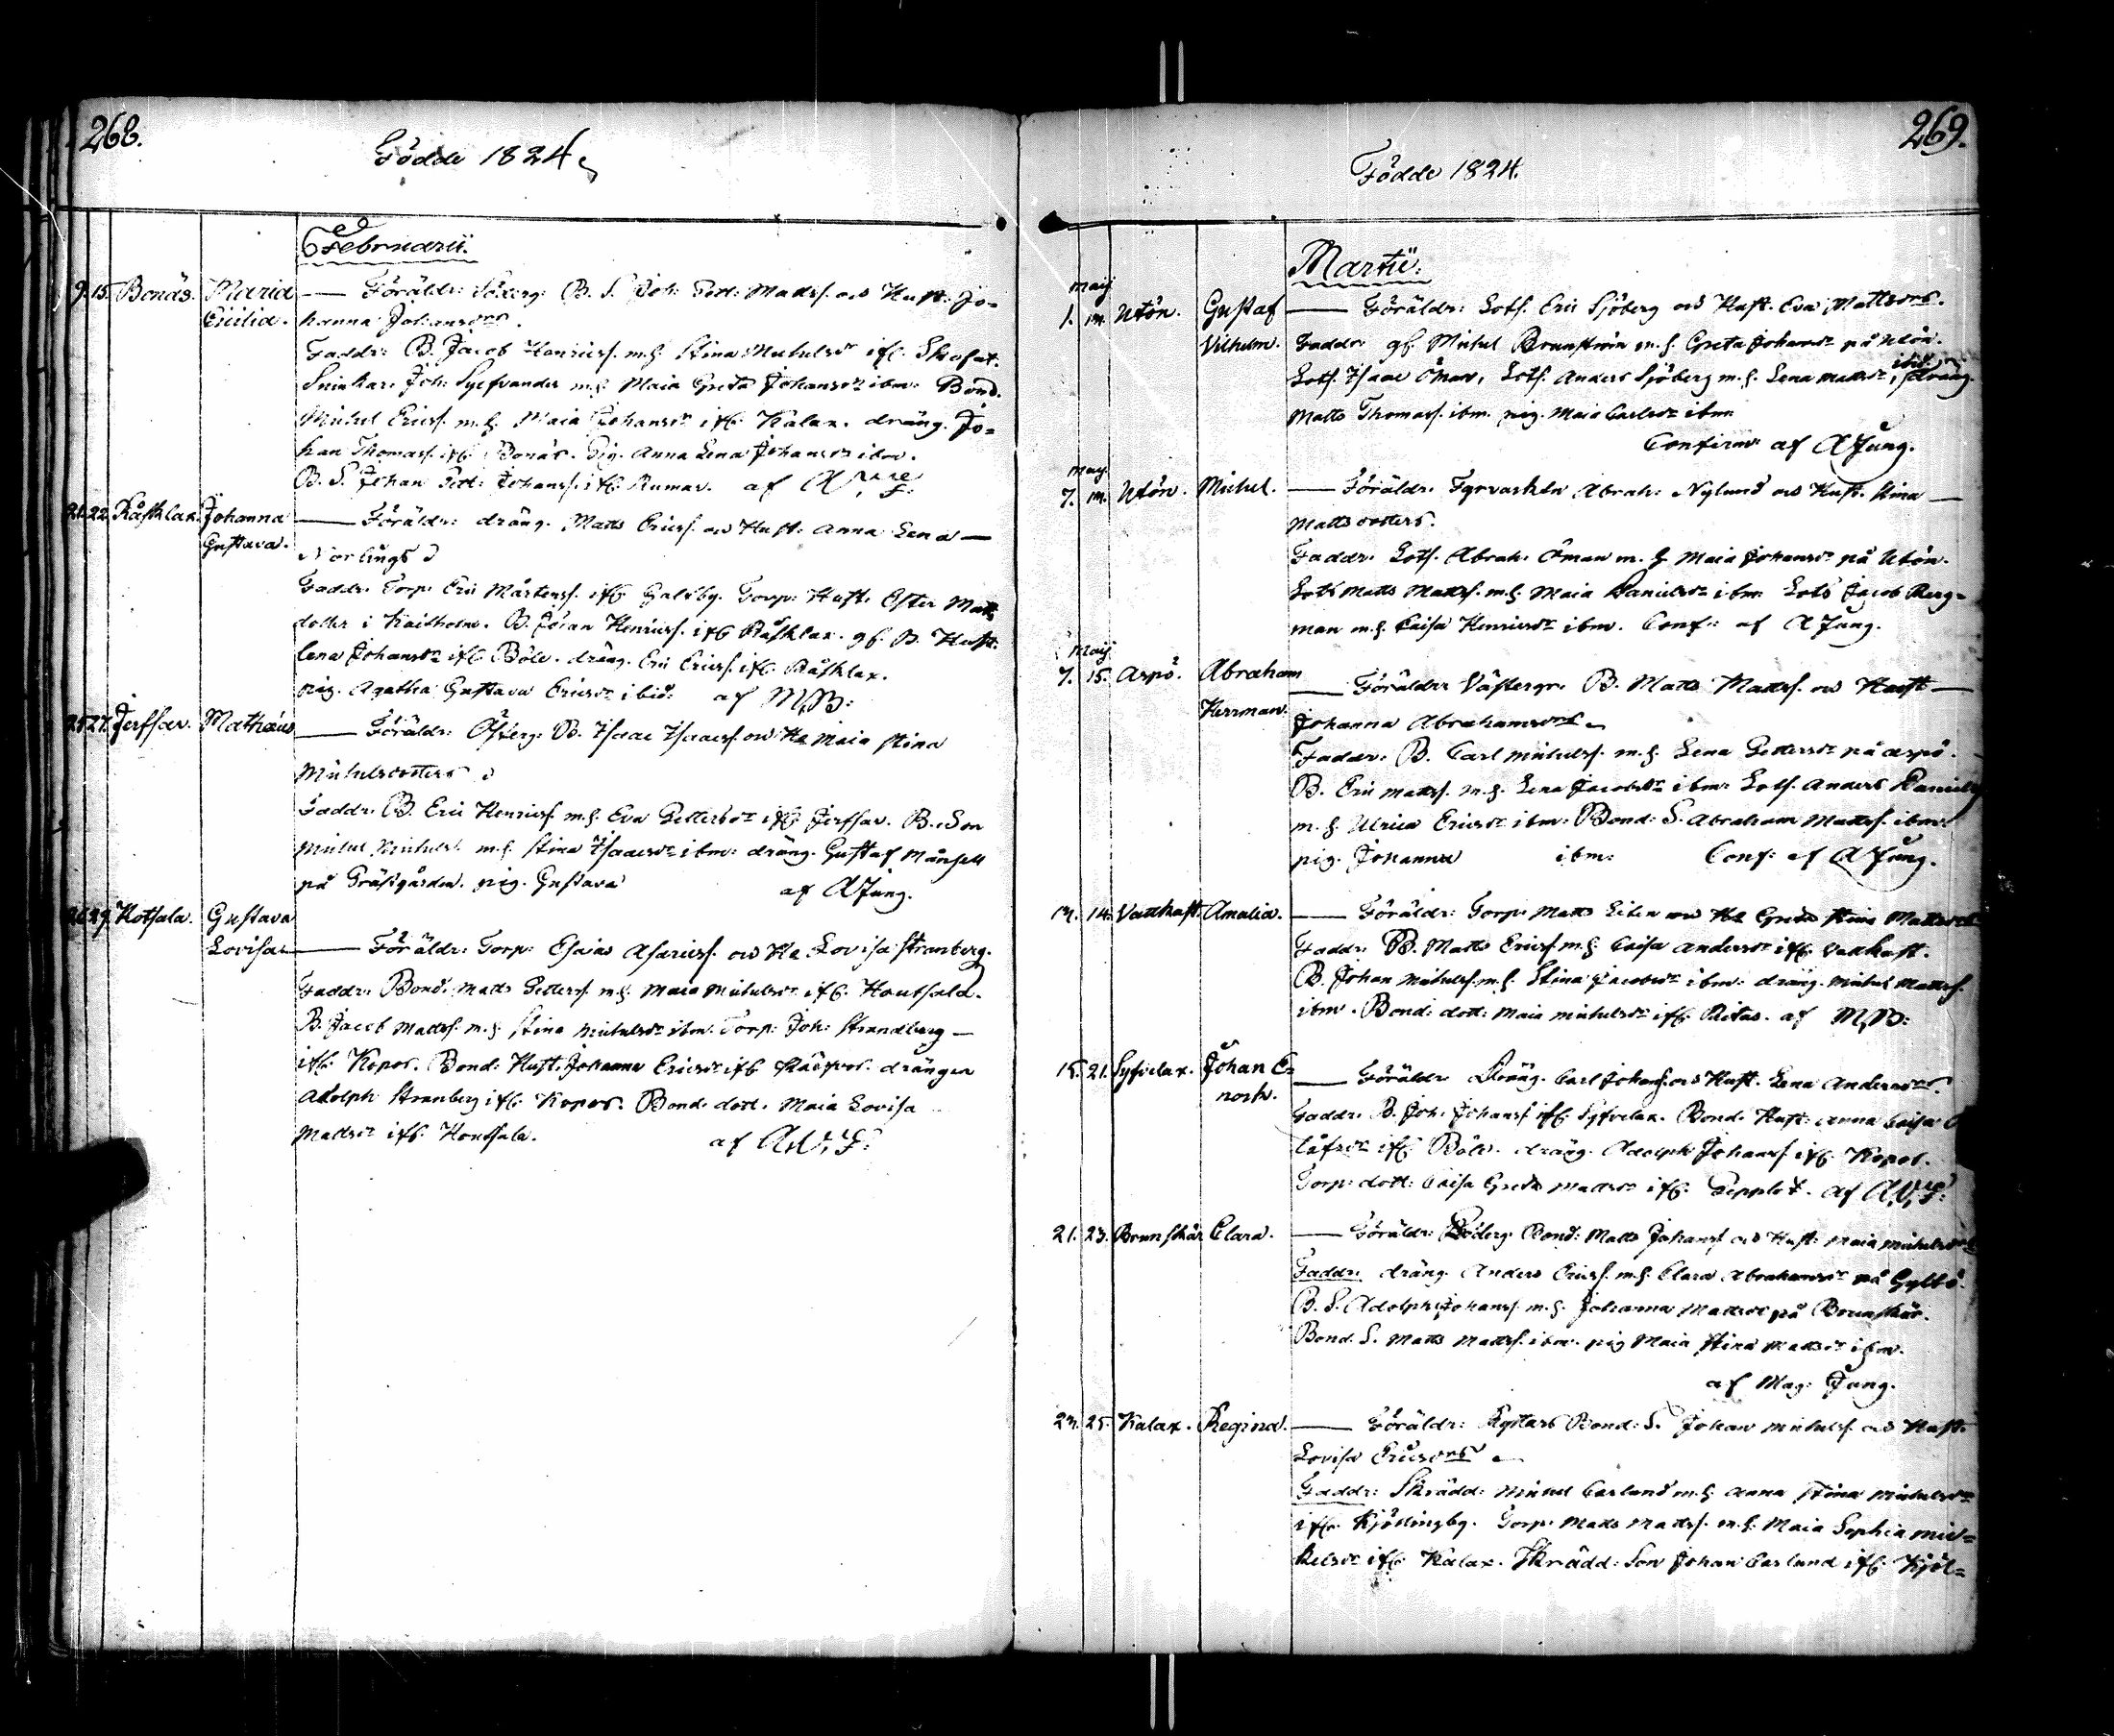 268.
Födde 1824
Februarii.
9. 15. Bonäs. Maria — Föräldr: Söderg: B. S. Joh: Pett: Matts. och Hust: Jo=
Cicilia. hanna Johansdr.
Faddr: B. Jacob Henricss. m. h. Stina Michelsdr ifr.
Snickar. Joh: m. h. Maia Greta Johansdr ibm: Bond.
Michel Ericss. m. h. Maia Johansdr ifr. Kalax. dräng. Jo=
han Thomass. ifr. Bonäs. Pig. Anna Lena Johansdr ibm.
B. S. Johan Pett: Johanss. ifr. Rumar. af
21. 22. Råsklax. Johanna — Föräldr: dräng. Matts Ericss. och Hust: Anna Lena —
Gustava. Norlings
Faddr. Torp: Eric Mårtenss. ifr. Galsby. Torp: Hust: Ester Matts
dotter i B. Göran Henricss. ifr. Råsklax. gf. B. Hust:
Lena Johansdr ifr. Böle. dräng. Eric Ericss. ifr. Råsklax.
pig. Agatha Gustava Ericsdr ibid: af M,B:
25 27. Jerfsar. Mathæus — Föräldr: Österg: B. Isaac Isaacss. och H. Maia Stina
Michelsdotters
Faddr. B. Eric Henricss. m. h. Eva Pettersdr ifr. Jerfsar. B. Son
Michel Michels. m. h. Stina Isaacsdr ibm: dräng. Gustaf Månsell
på Prästgården. pig. Gustava af AJung.
26 29. Hotsala. Gustava
Lovisa. — Föräldr: Torp: Esaias Asariess. och H. Lovisa Stranberg.
Faddr. Bond. Matts Petterss. m. h. Maia Michelsdr ifr. Houtsala.
B. Jacob Mattss. m. h. Stina Michelsdr ibm. Torp: Joh: Strandberg —
ifr. Kopos. Bond: Hust. Johanna Ericsdr ifr. drängen
Adolph Stranberg ifr. Kopos. Bond: dott. Maia Lovisa
Mattsdr ifr. Houtsala. af
269.
Födde 1824.
Martii.
Maij
1. m. Utön. Gustaf — Föräldr: Lots. Eric Sjöberg och Hust. Eva Mattsdrs.
Vilhelm. Faddr: gf. Michel Brunström m. h. Greta Johansdr på Utön.
Lots. Isaac Öman, Lots. Anders Sjöberg m. h. Lena Mattsdr, ibid: dräng.
Matts Thomass. ibm. pig. Maia Carlsdr ibm
Confirm: af AJung.
Maij
7. m. Utön. Michel. — Föräldr: Fyrvaktn Abrah: Nylund och Hust. Stina —
Mattsdotters.
Faddr: Lots. Abrah: Öman m. h. Maia Johansdr på Utön.
Lots Matts Mattss. m. h. Maia Danielsdr ibm: Lots Jacob Berg=
man m. h. Caisa Henricsdr ibm. Conf: af AJung.
Maij
7. 15. Aspö. Abraham — Föräldrr Västergr: B. Matts Mattss. och Hust —
Herrman. Johanna Abrahamsdrs
Faddr: B. Carl Michelss. m. h. Lena Pettersdr på Aspö.
B. Eric Mattss. m. h. Lena Jacobsdr ibm: Lots. Anders Daniels
m. h. Ulrica Ericsdr ibm: Bond: S. Abraham Mattss. ibm:
pig. Johanna ibm: Conf: af AJung.
14. Vattkast. Amalia. — Föräldr: Torp: Matts Liten och H. Greta Stina Mattsdrs
Faddr: B. Matts Ericss. m. h. Caisa Andersdr ifr. Vattkast.
B. Johan Michelss. m. h. Stina Jacobsdr ibm: dräng. Michel Mattss.
ibm. Bond: dott: Maia Michelsdr ifr. af M,B:
15. 21. Sysilax. Johan E=
noch. — Föräldr Dräng. Carl Johanss. och Hust. Lena Andersdrs
Faddr: B. Joh: Johanss. ifr. Bond: Hust: Anna Caisa O
låfsdr ifr. Böle. dräng. Adolph Johanss. ifr. Kopos.
Torp: dott: Caisa Greta Mattsdr ifr. af
21. 23. Brunskär Clara. — Föräldr: Söderg: Bond: Matts Johanss och Hust: Maia Michelsdrs
Faddr: dräng. Anders Ericss. m. h. Clara Abrahamsdr på Gyltö.
B. S. Adolph Johanss. m. h. Johanna Mattsdr på Brunskär.
Bond. S. Matts Mattss. ibm. pig Maia Stina Mattsdr ibm.
af Mag: Jung.
23. 25. Kalax. Regina. — Föräldr: Rystars Bond: S. Johan Michelss. och Hust.
Lovisa Ericsdrs
Faddr: Skrädd: Michel Carlund m. h. Anna Stina Michelsdr
ifr. Kjöllingby. Torp. Matts Mattss. m. h. Maia Sophia Mic=
kelsdr ifr. Kalax. Skrädd: Son Johan Carlund ifr. Kjöl=